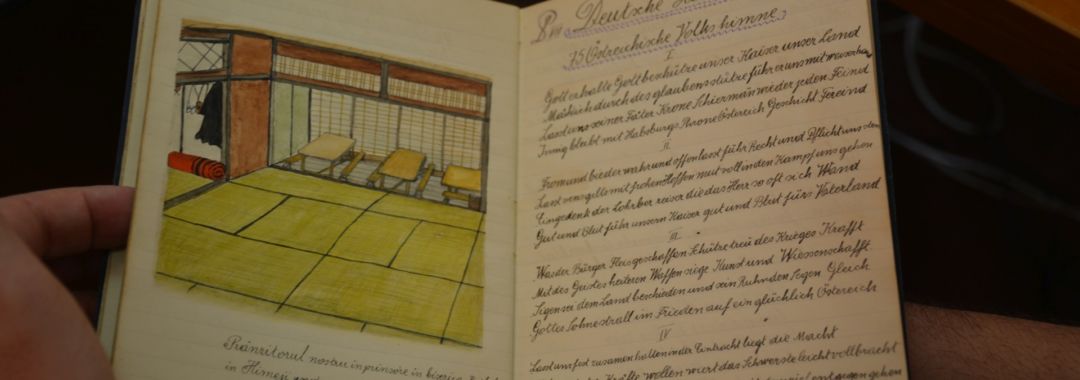 Prânzitorul nostru in prinsóre in biserica
in Himeji
Deutsche
75 Östreichische Volks himne
I
Gott erhalte Gott beschütze unser Kaiser unser Land
Mächtich durch des glaubens stütze führ er uns mit
Lasst uns seiner Fäter Krone Schiermän wieder jeden Feind
Innig bleibt mit Habsburgs Throne Östereich Geschicht Fereind
II
From und bieder wahr und offen lasst führ Recht und Pflicht uns
Lasst wens gilts mit frohen Hoffen mut voll in den Kampf uns gehen
Eingedenk der Lohrber reiser die das Herr so oft sich Wand
Gut und Blut führ unsern Kaiser gut und Blut fürs Vaterland
III
Was der Bürger Fleis geschaffen Schütze treu des Krieges Krafft
Mit des Geistes heiteren Waffen siege Kunst und Wiessenschafft
Segen sei dem Land beschieden und sein Ruhm den Segen Gleich
Gottes Sohne strall im Frieden auf ein glücklich Östereich
IV
Lasst uns fest zusamen halten in der Eintracht liegt die Macht
Kräfte wollen wirt das Schwerste leicht vollbracht
entgegen gehen